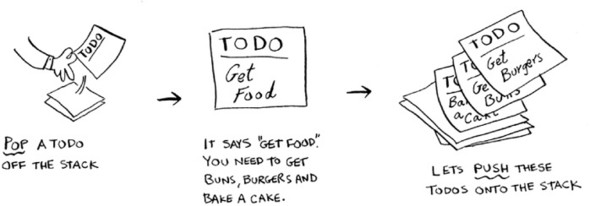 TODO
POP A TODO
OFF THE STACK
TODO
Get
Food
IT SAYS "GET FOOD".
YOU NEED TO GET
BUNS, BURGERS AND
BAKE A CAKE.
TODO
Get
Burgers
TO
Ge
Buns
TO
Ba
a
Cake
LETS PUSH THESE
TODOS ONTO THE STACK